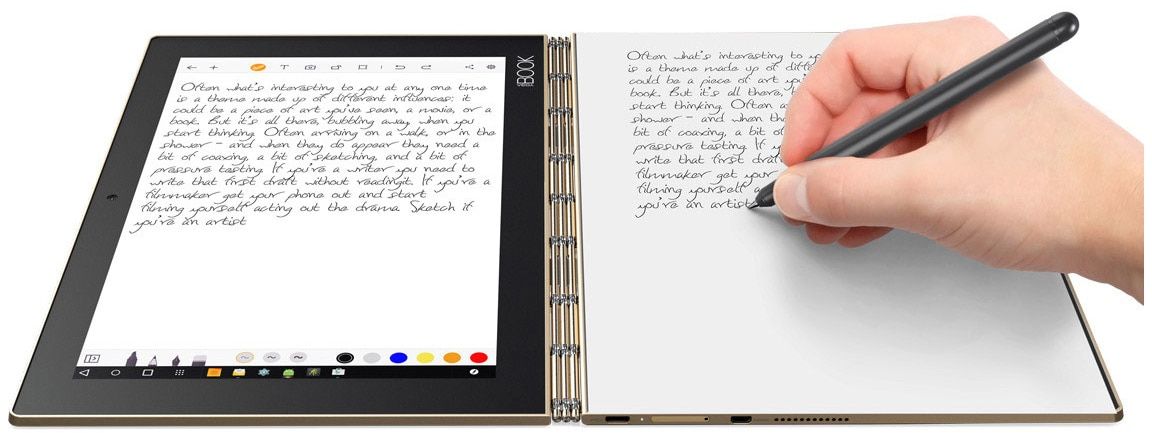 Often what's interesting to you at any one time
is a theme made up of different influences: it
could be a piece of art you've seen, a movie, or a
book. But it's all there, bubbling away, when you
start thinking. Often arriving on a walk, or in the
shower - and when they do appear they need a
bit of coaxing, a bit of sketching, and a bit of
pressure testing. If you're a writer you need to
write that first draft without readingit. If you're a
filmmaker get your phone out and start
filming yourself acting out the drama. Sketch if
you're an artist
YOGA BOOK
Often what's interesting to
is a theme made up of
could be a piece of art
book. But it's all there,
start thinking. Often
shower - and when
bit of coaxing, a bit of
pressure testing. If
write that first
filmmaker get your
filming yourself
you're an artist